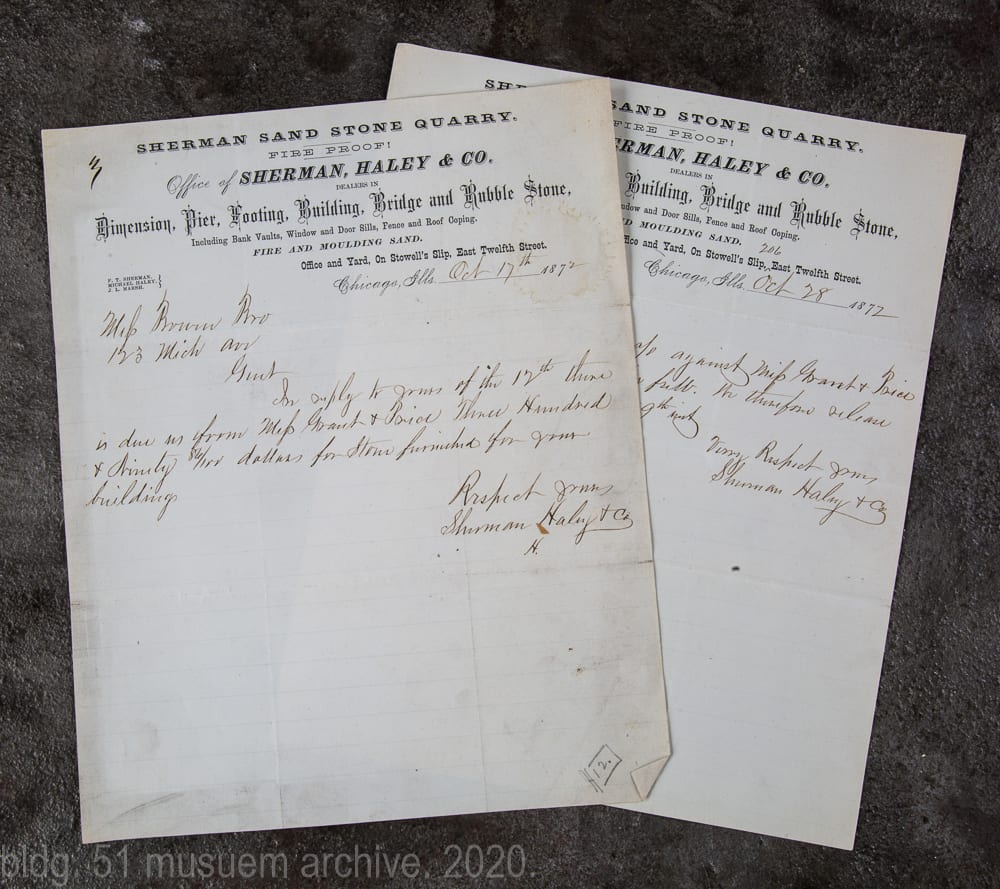 4/
SHERMAN SAND STONE QUARRY.
FIRE PROOF!
Office of SHERMAN, HALEY & CO.
DEALERS IN
Dimension, Pier, Footing, Building, Bridge and Rubble Stone,
Including Bank Vaults, Window and Door Sills, Fence and Roof Coping.
FIRE AND MOULDING SAND.
Office and Yard, On Stowell's Slip, East Twelfth Street.
F. T. SHERMAN,
MICHAEL HALEY,
J. L. MARSH.
Chicago, Ills. Oct 17th 1872
Mess Brown Bro
123 Mich ave
Gent
In reply to yours of the 17th there
is due us from Mess Grant & Price Three Hundred
& Ninety /100 dollars for Stone furnished for your
buildings
Respect yours
Sherman Haley & Co
H.
12.
SH
SAND STONE QUARRY.
FIRE PROOF!
RMAN, HALEY & CO.
DEALERS IN
Building, Bridge and Rubble Stone,
ndow and Door Sills, Fence and Roof Coping.
D MOULDING SAND.
206
ffice and Yard, On Stowell's Slip, East Twelfth Street.
Chicago, Ills. Oct 28 1872
against Mess Grant & Price
We therefore release
9th inst
Very Respect yours
Sherman Haley & Co
bldg. 51 musuem archive. 2020.